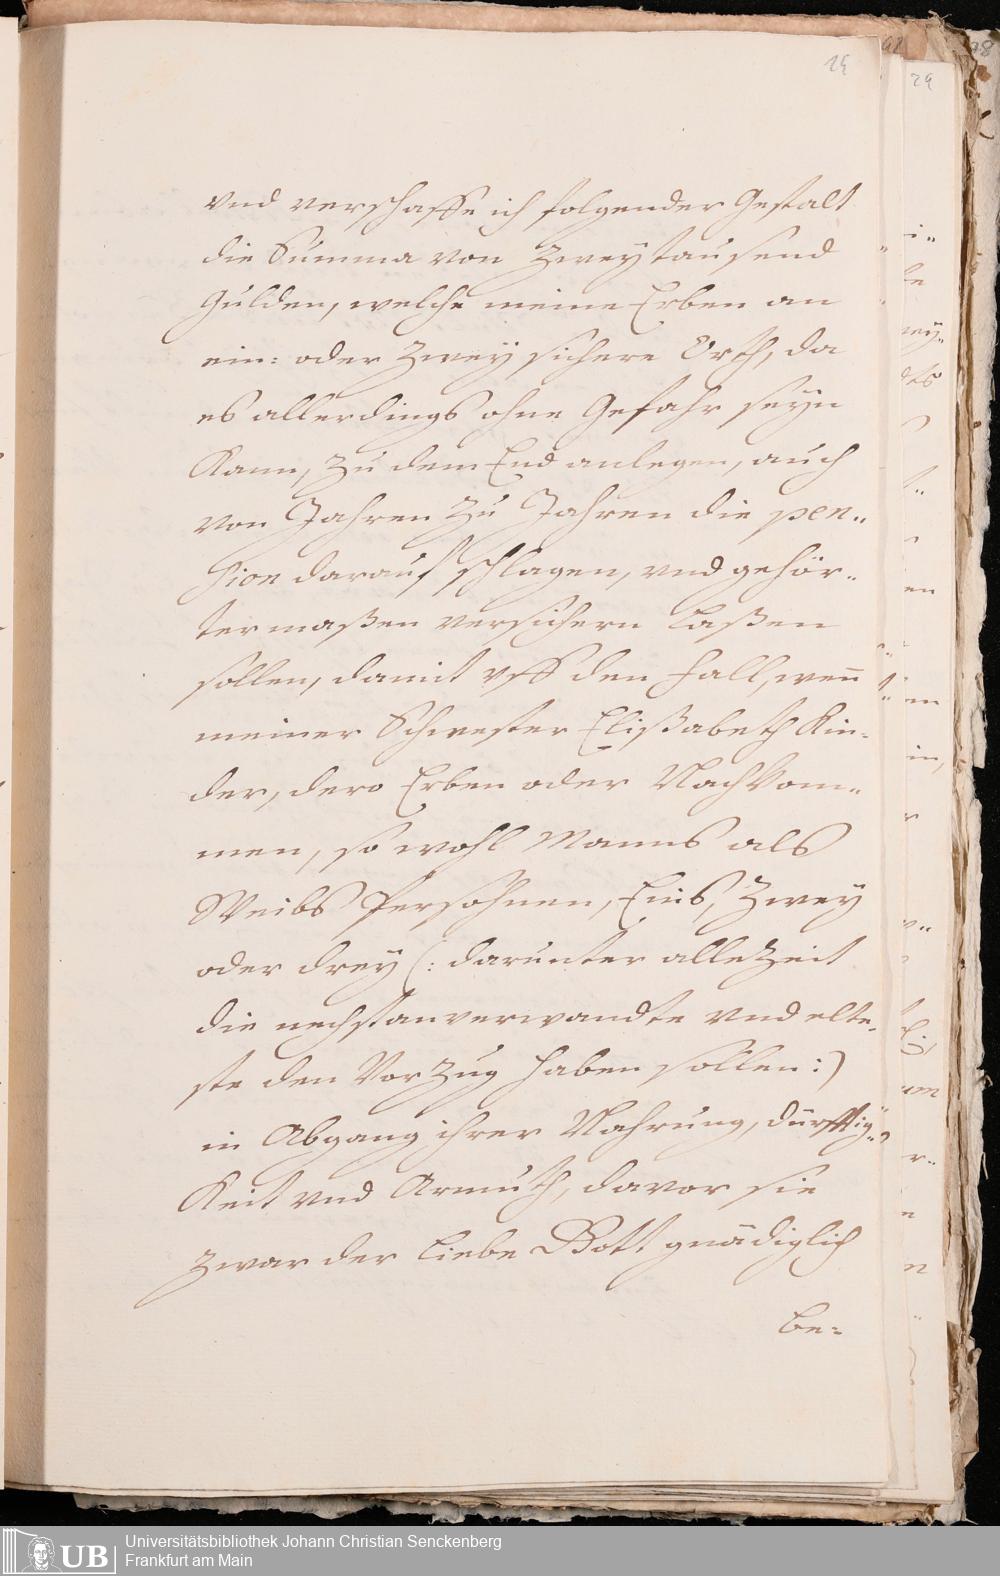 19
29
vnd verschaffe ich folgender Gestalt
die Summa von Zweytausend
Gulden, welche meine Erben an
ein: oder Zwey sichere Orth, da
es allerdings ohne Gefahr seyn
Kann, zu dem End anlegen, auch
von Jahren zu Jahren die pen„
sion darauf schlagen, vnd gehör„
ter maßen versichern Laßen
sollen, damit vff den fall, wen̄
meiner Schwester Elißabeth Kin„
der, dero Erben oder Nachkom„
men, so wohl Manns als
Weibs Persohnen, Eins, Zwey
oder drey (: darunter alle Zeit
die nechstanverwandte vnd elte„
ste den Vorzug haben sollen :)
in Abgang ihrer Nahrung, dürfftig„
Keit vnd Armuth, davor sie
zwar der Liebe Gott gnädiglich
be=
UB
Universitätsbibliothek Johann Christian Senckenberg
Frankfurt am Main